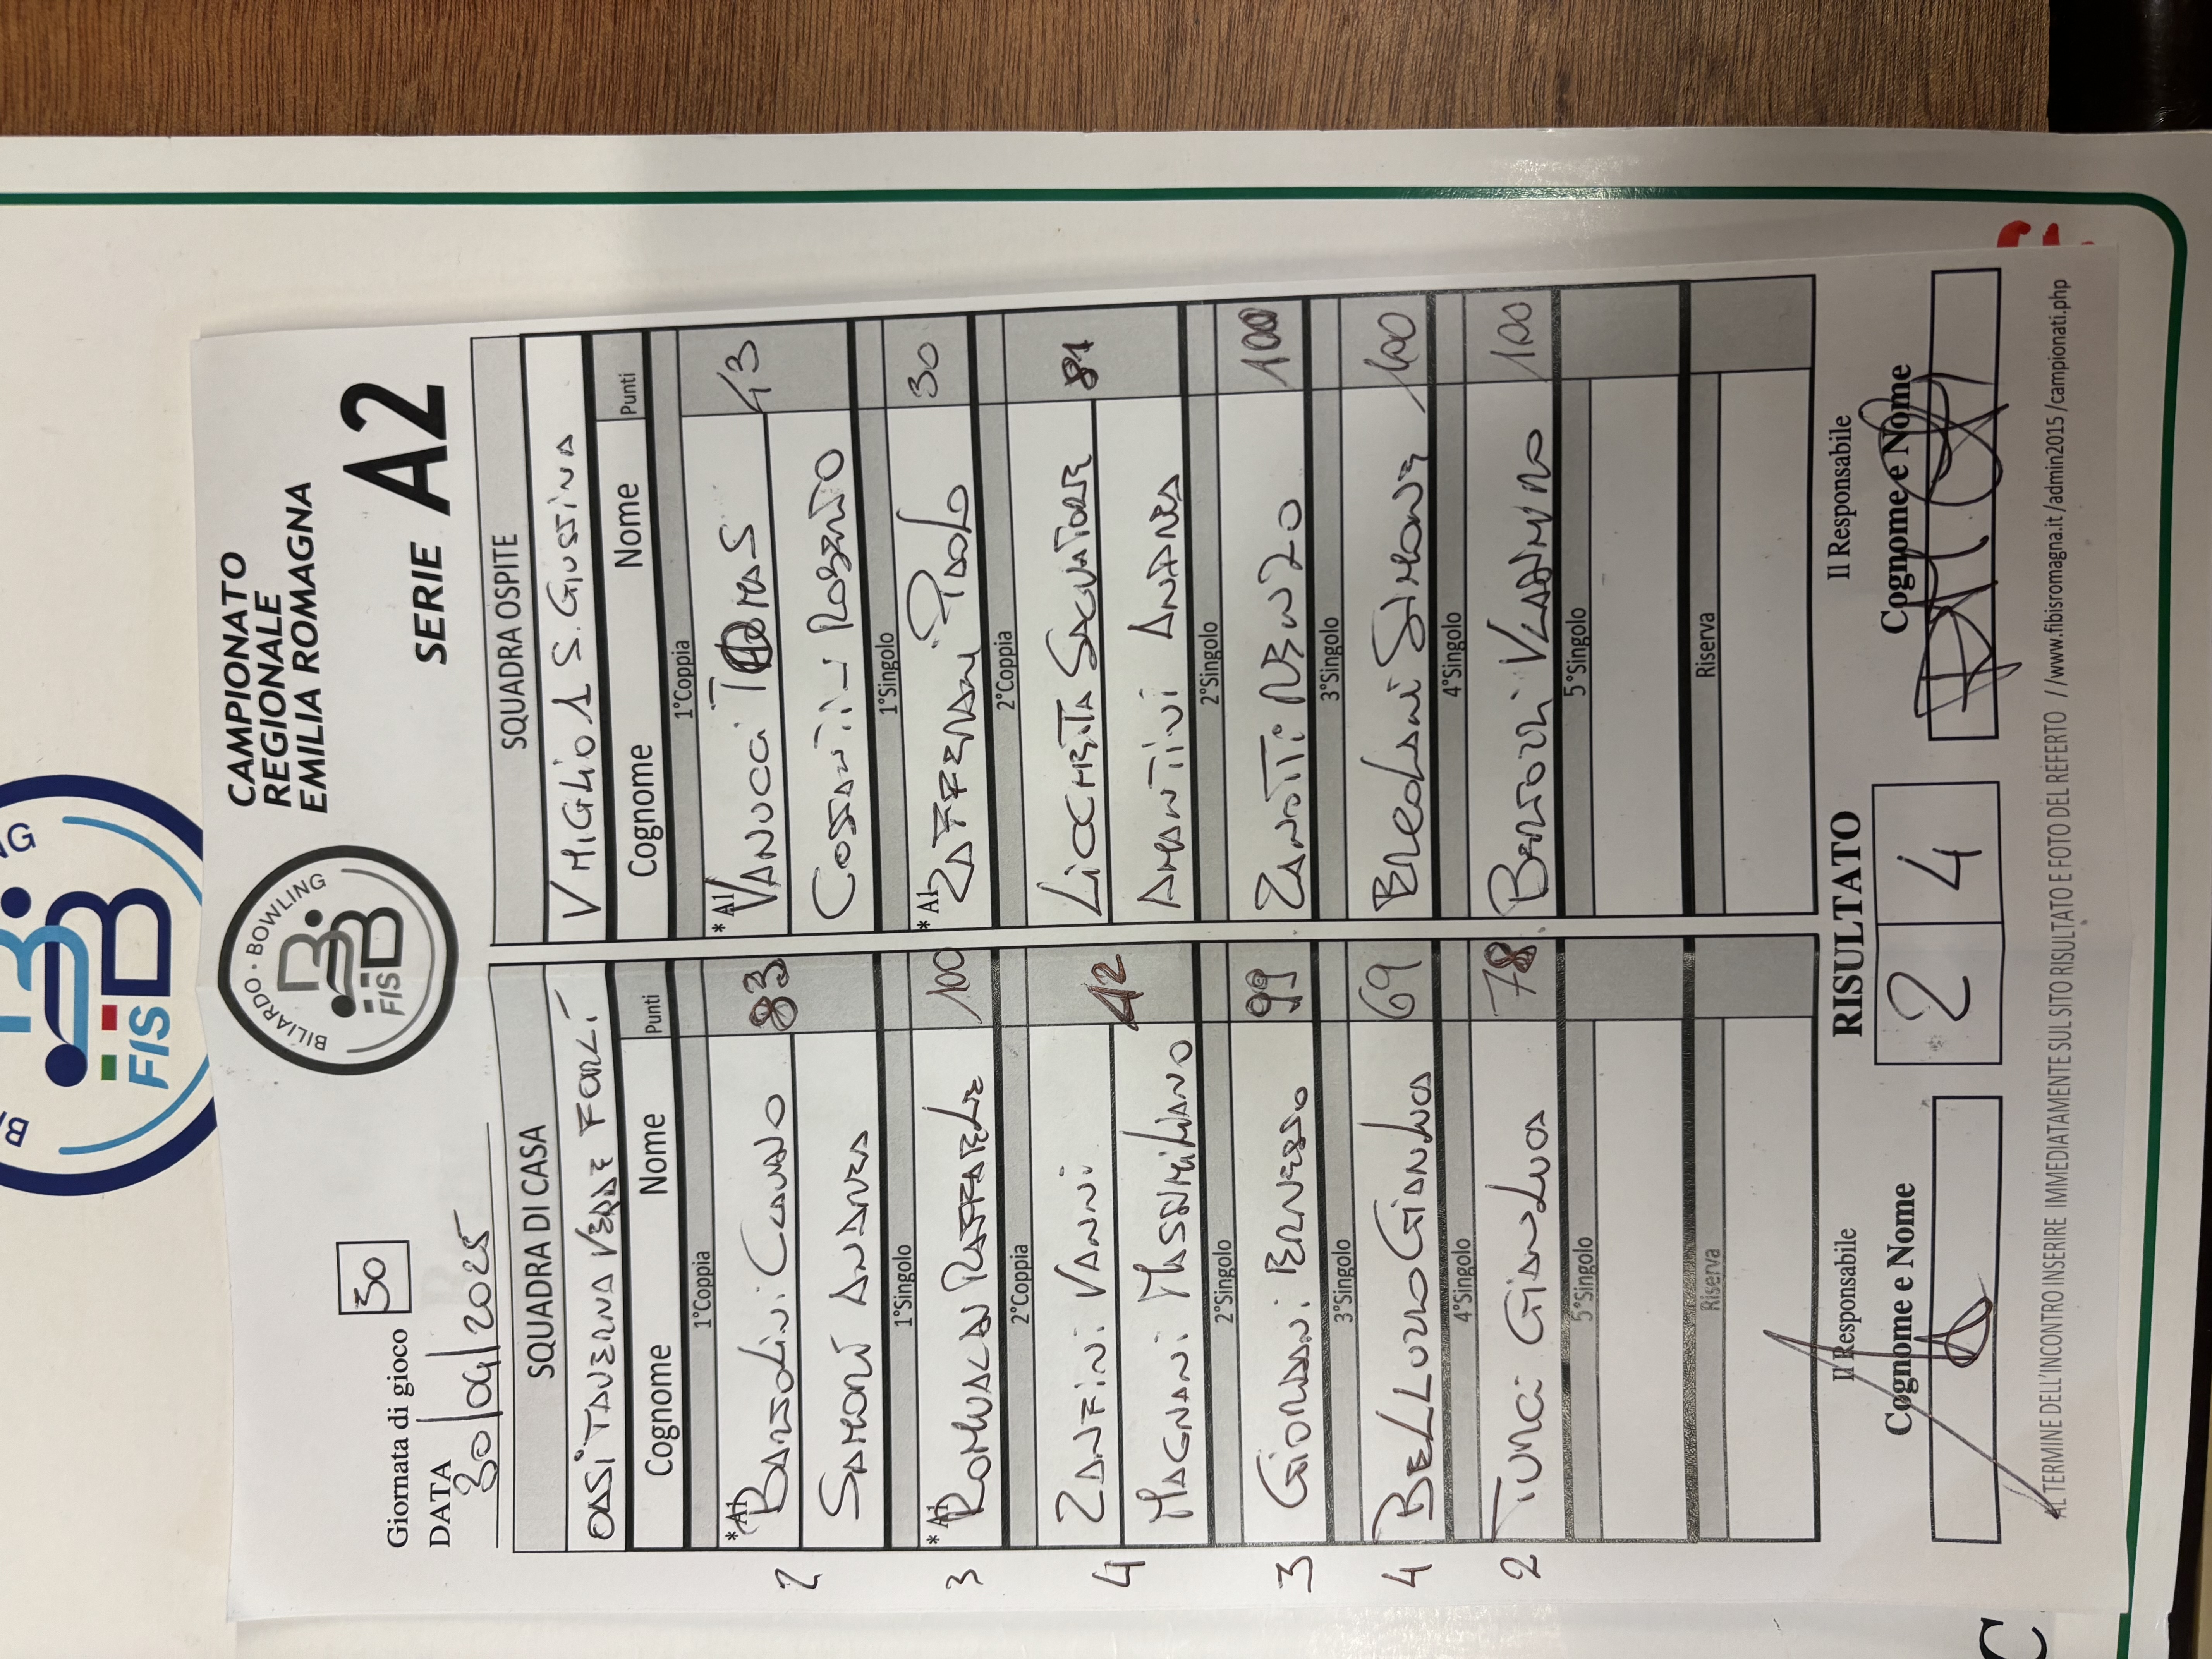 CAMPIONATO
REGIONALE
EMILIA ROMAGNA
BILIARDO · BOWLING
FISBB
SERIE A2
Giornata di gioco 30
DATA
30/09/2025
SQUADRA DI CASA
OASI TAVERNA VERDE FORLÌ
Cognome Nome Punti
1°Coppia
*A1 BARZOLINI CLAUDIO 83
2
SAMORÌ ANDREA
1°Singolo
*A1 ROMUALDI RAFFAELE 100
3
2°Coppia
ZANFINI VANNI 42
4
MAGNANI MASSIMILIANO
2°Singolo
3 GIORDANI ERNESTO 99
3°Singolo
4 BELLUZZO GIANLUCA 69
4°Singolo
2 TURCI GIANLUCA 78
5°Singolo
Riserva
SQUADRA OSPITE
V MIGLIO 1 S. GIUSTINA
Cognome Nome Punti
1°Coppia
*A1 VANUCCI TOMAS 43
COSTANTINI ROBERTO
1°Singolo
*A1 ZAFFERANI PAOLO 30
2°Coppia
LIOCHETTA SALVATORE 81
AMANTINI ANDREA
2°Singolo
ZANOTTI RENZO 100
3°Singolo
BREOLANI SIMONE 100
4°Singolo
BERTOZZI VLADIMIRO 100
5°Singolo
Riserva
Il Responsabile
Cognome e Nome
RISULTATO
2 4
Il Responsabile
Cognome e Nome
AL TERMINE DELL'INCONTRO INSERIRE IMMEDIATAMENTE SUL SITO RISULTATO E FOTO DEL REFERTO //www.fibisromagna.it/admin2015/campionati.php